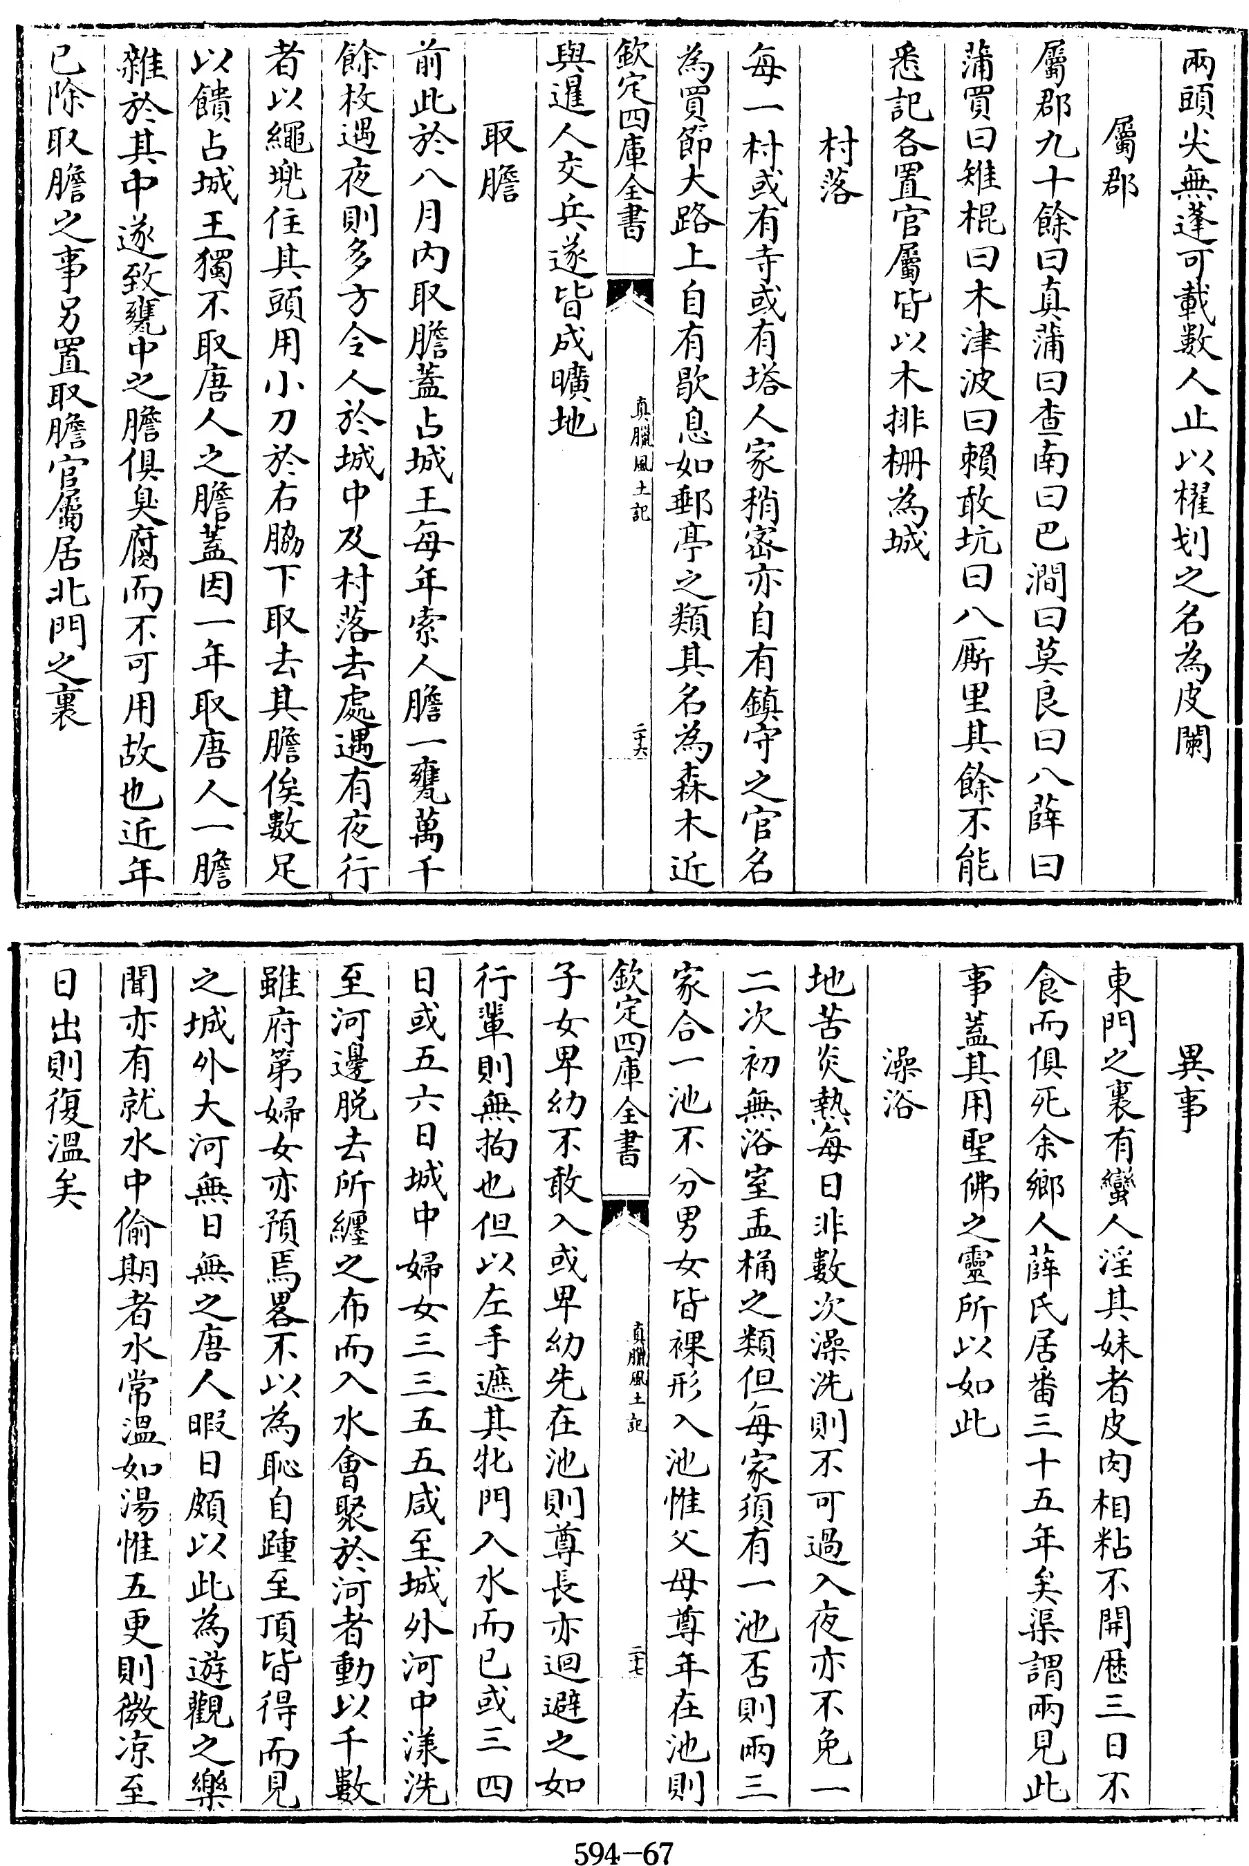 兩頭尖無蓬可載數人止以櫂划之名為皮闌
屬郡
屬郡九十餘曰真蒲曰查南曰巴澗曰莫良曰八薛曰
蒲買曰雉棍曰木津波曰賴敢坑曰八厮里其餘不能
悉記各置官屬皆以木排柵為城
村落
每一村或有寺或有塔人家稍密亦自有鎮守之官名
為買節大路上自有歇息如郵亭之類其名為森木近
欽定四庫全書
真臘風土記
二十六
與暹人交兵遂皆成曠地
取膽
前此於八月內取膽蓋占城王每年索人膽一甕萬千
餘枚遇夜則多方令人於城中及村落去處遇有夜行
者以繩兠住其頭用小刀於右脇下取去其膽俟數足
以饋占城王獨不取唐人之膽蓋因一年取唐人一膽
雜於其中遂致甕中之膽俱臭腐而不可用故也近年
已除取膽之事另置取膽官屬居北門之裏
異事
東門之裏有蠻人淫其妹者皮肉相粘不開歴三日不
食而俱死余鄉人薛氏居番三十五年矣渠謂兩見此
事蓋其用聖佛之靈所以如此
澡浴
地苦炎熱每日非數次澡洗則不可過入夜亦不免一
二次初無浴室盂桶之類但每家須有一池否則兩三
家合一池不分男女皆裸形入池惟父母尊年在池則
欽定四庫全書
真臘風土記
二十七
子女卑幼不敢入或卑幼先在池則尊長亦迴避之如
行輩則無拘也但以左手遮其牝門入水而已或三四
日或五六日城中婦女三三五五咸至城外河中漾洗
至河邊脫去所纒之布而入水會聚於河者動以千數
雖府第婦女亦預焉畧不以為恥自踵至頂皆得而見
之城外大河無日無之唐人暇日頗以此為遊觀之樂
聞亦有就水中偷期者水常溫如湯惟五更則微凉至
日出則復溫矣
594-67